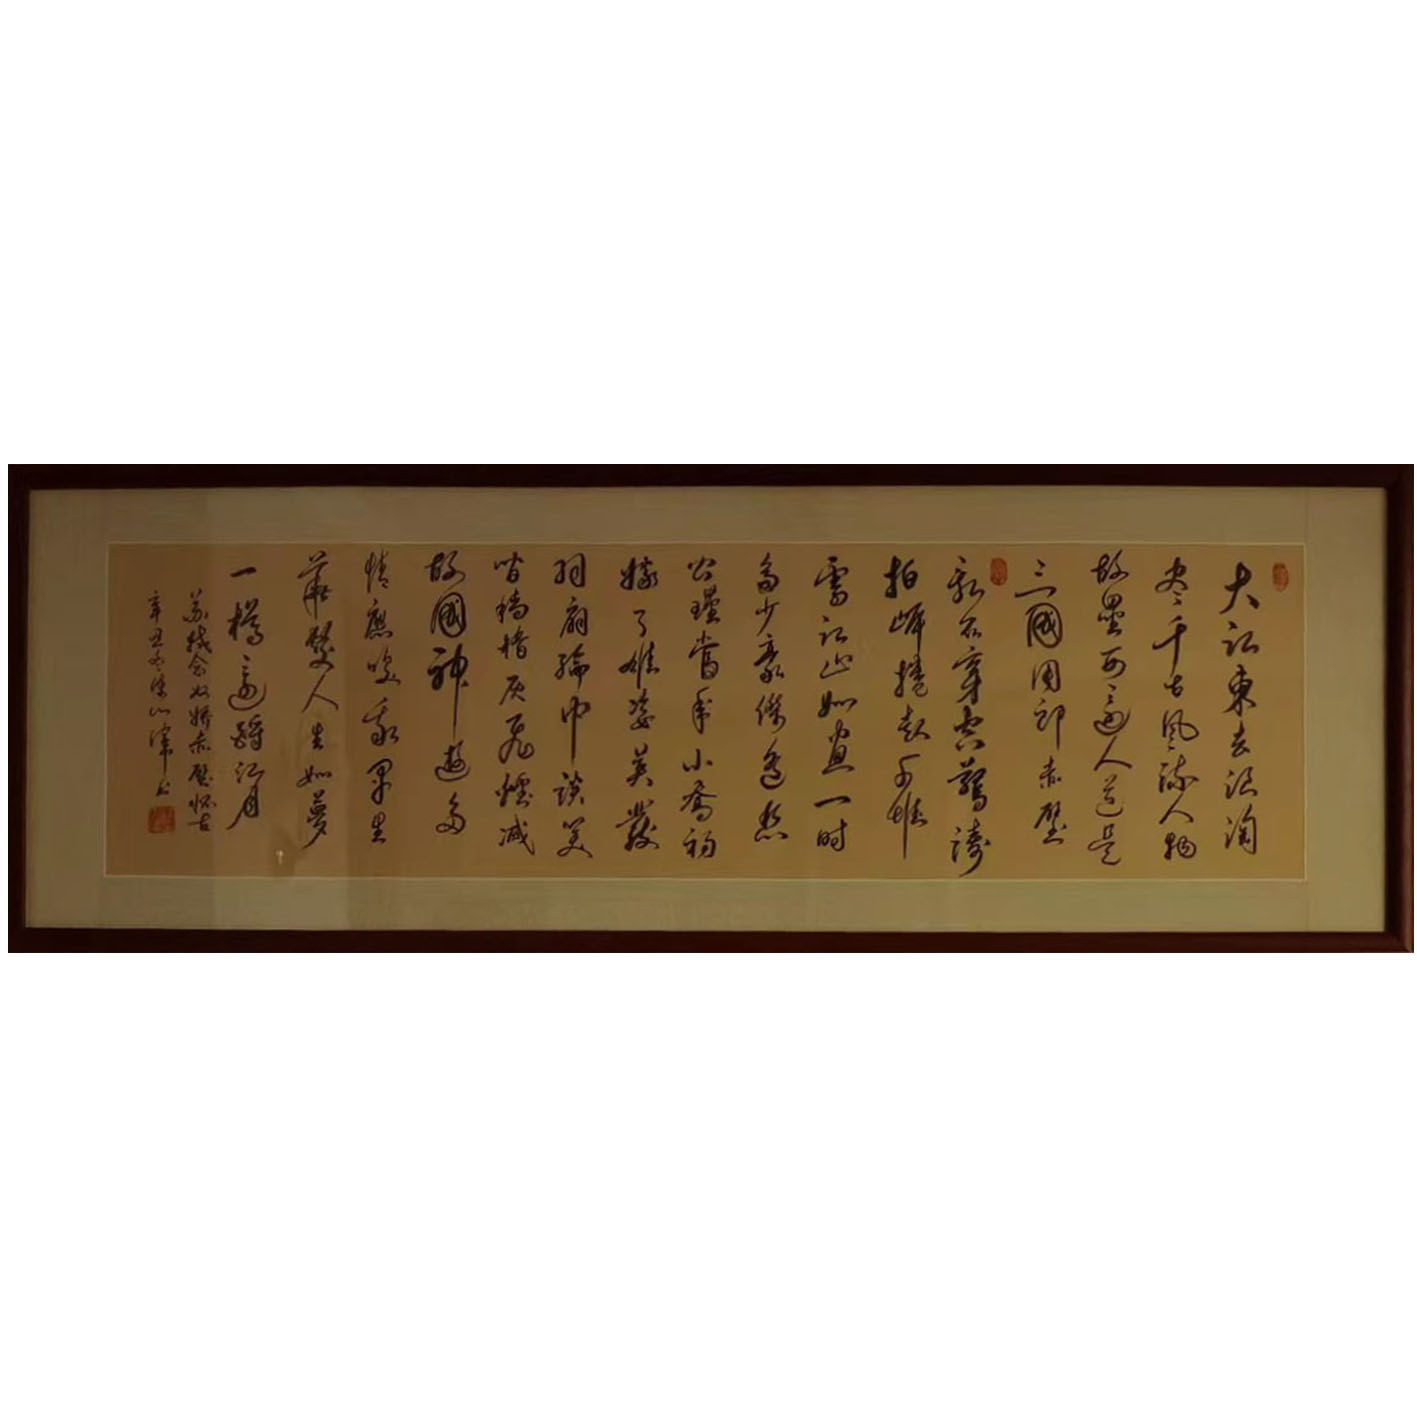 大江東去浪淘
尽千古風流人物
故壘西邊人道是
三國周郎赤壁
亂石穿空驚濤
拍岸捲起千堆
雪江山如畫一时
多少豪傑遙想
公瑾當年小喬初
嫁了雄姿英發
羽扇綸巾談笑
間檣櫓灰飛煙滅
故國神遊多
情應笑我早生
華髮人生如夢
一樽還酹江月
苏軾念奴嬌赤壁怀古
辛丑冬